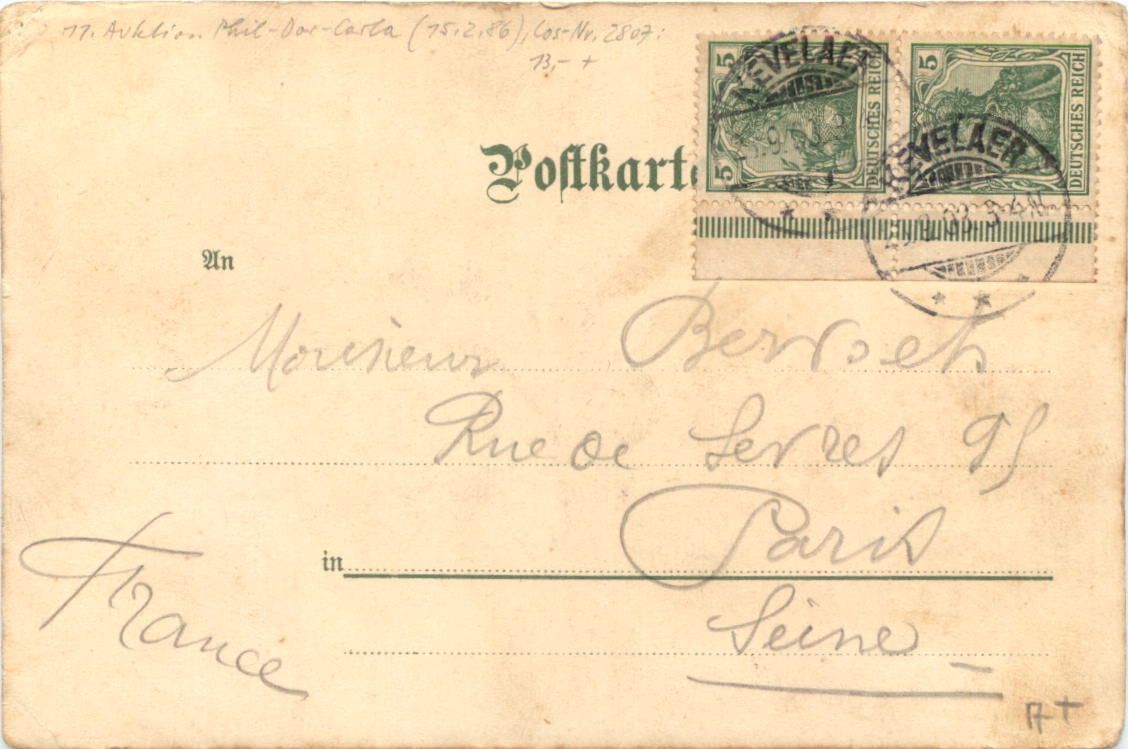 11. Auktion Phil-Dor-Carla (15.2.86), Los-Nr. 2807:
13,- +
5 5 DEUTSCHES REICH
5 DEUTSCHES REICH
KEVELAER
KEVELAER
03 3-4N
Postkarte
An
Monsieur
Rue de Sevres 95
in Paris
Seine
France
A+